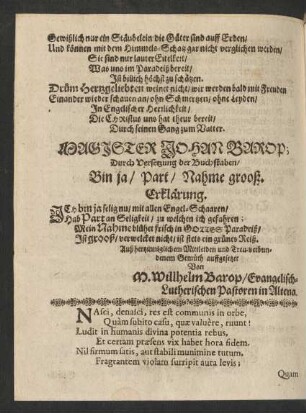 Gewißlich nur ein Stäubelein die Güter sind auff Erden/
Und können mit dem Himmels-Schatz gar nicht verglichen werden/
Sie sind nur lauter Eitelkeit/
Was uns im Paradeiß bereit/
Ist billich höchst zu schätzen.
Drüm Hertzgeliebten weinet nicht/ wir werden bald mit Freuden
Einander wieder schauen an/ ohn Schmertzen/ ohne Leyden/
In Engelischer Herrlichkeit/
Die Christus uns hat theur bereit/
Durch seinen Gang zum Vatter.
MAGISTER JOHAN BAROP;
Durch Versetzung der Buchstaben/
Bin ja/ Part/ Nahme grooß.
Erklärung.
ICh bin ja selig nu/ mit allen Engel-Schaaren/
Hab Part an Seligkeit/ zu welchen ich gefahren;
Mein Nahme blühet frisch in GOTTES Paradeiß/
Ist grooß/ verwelcket nicht/ ist stets ein grünes Reiß.
Auß hertzinniglichem Mittleiden und Treu-verbun-
denem Gemüth auffgesetzet
Von
M. Willhelm Barop/ Evangelisch-
Lutherischen Pastoren in Altena.
NAsci, denasci, res est communis in orbe,
Quàm subito casu, quæ valuêre, ruunt!
Ludit in humanis divina potentia rebus,
Et certam præsens vix habet hora fidem.
Nil firmum satis, aut stabili munimine tutum.
Fragrantem violam surripit aura levis;
Quam